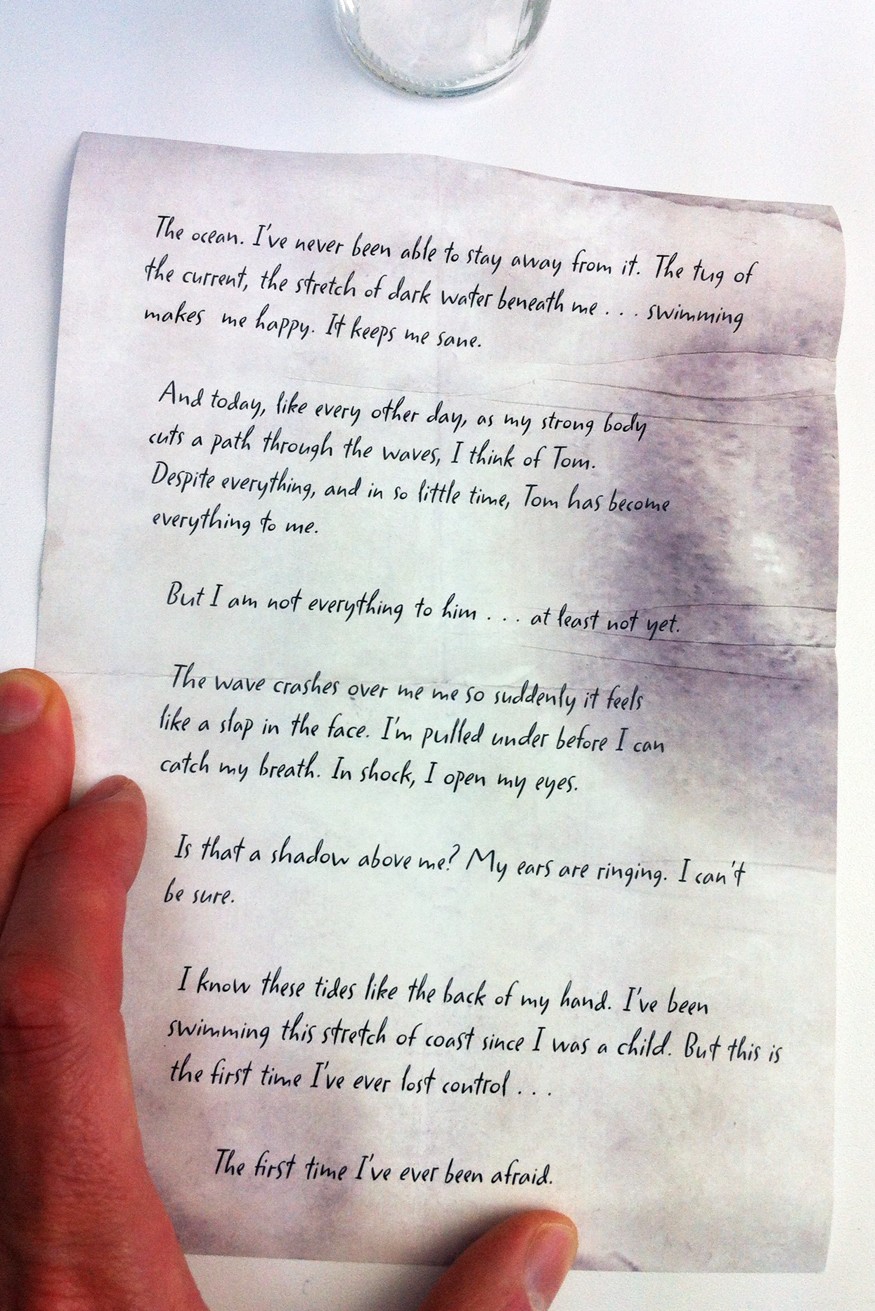 The ocean. I've never been able to stay away from it. The tug of
the current, the stretch of dark water beneath me . . . swimming
makes me happy. It keeps me sane.
And today, like every other day, as my strong body
cuts a path through the waves, I think of Tom.
Despite everything, and in so little time, Tom has become
everything to me.
But I am not everything to him . . . at least not yet.
The wave crashes over me me so suddenly it feels
like a slap in the face. I'm pulled under before I can
catch my breath. In shock, I open my eyes.
Is that a shadow above me? My ears are ringing. I can't
be sure.
I know these tides like the back of my hand. I've been
swimming this stretch of coast since I was a child. But this is
the first time I've ever lost control . . .
The first time I've ever been afraid.